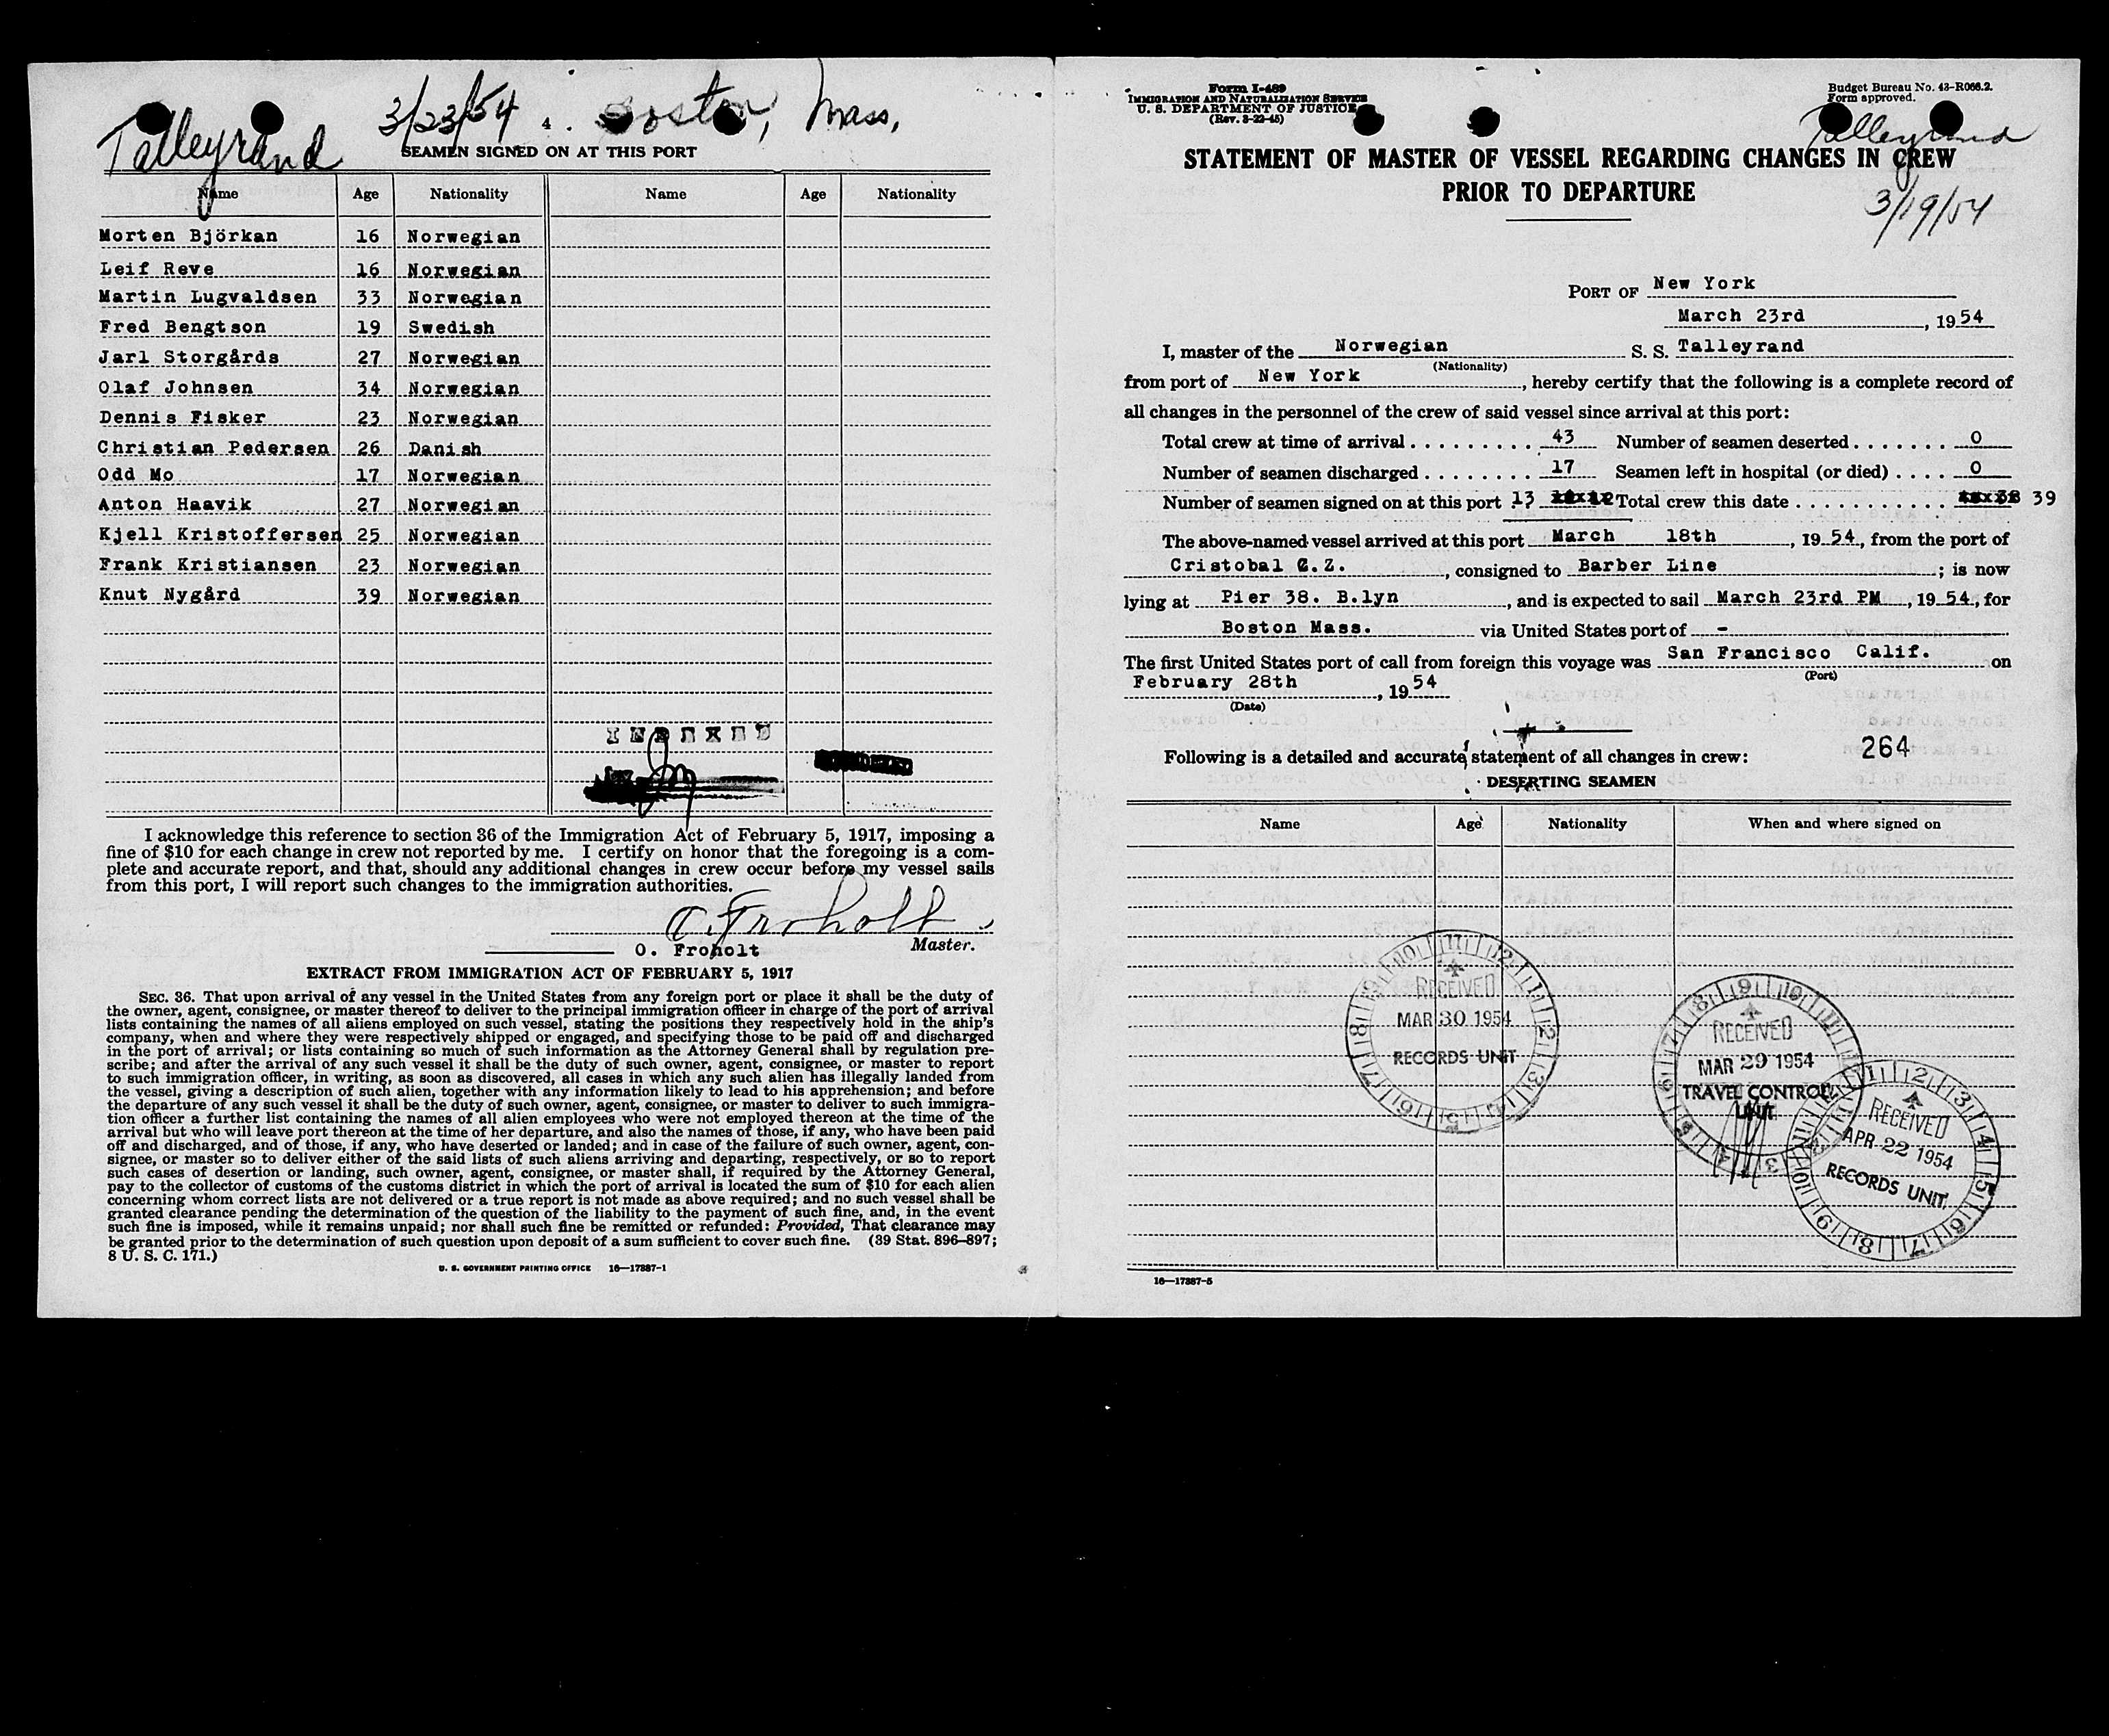 Talleyrand 3/23/54 4. Boston, Mass,
SEAMEN SIGNED ON AT THIS PORT
Name Age Nationality Name Age Nationality
Morten Björkan 16 Norwegian
Leif Reve 16 Norwegian
Martin Lugvaldsen 33 Norwegian
Fred Bengtson 19 Swedish
Jarl Storgårds 27 Norwegian
Olaf Johnsen 34 Norwegian
Dennis Fisker 23 Norwegian
Christian Pedersen 26 Danish
Odd Mo 17 Norwegian
Anton Haavik 27 Norwegian
Kjell Kristoffersen 25 Norwegian
Frank Kristiansen 23 Norwegian
Knut Nygård 39 Norwegian
INDEXED
I acknowledge this reference to section 36 of the Immigration Act of February 5, 1917, imposing a
fine of $10 for each change in crew not reported by me. I certify on honor that the foregoing is a com-
plete and accurate report, and that, should any additional changes in crew occur before my vessel sails
from this port, I will report such changes to the immigration authorities.
O. Froholt
O. Froholt Master.
EXTRACT FROM IMMIGRATION ACT OF FEBRUARY 5, 1917
SEC. 36. That upon arrival of any vessel in the United States from any foreign port or place it shall be the duty of
the owner, agent, consignee, or master thereof to deliver to the principal immigration officer in charge of the port of arrival
lists containing the names of all aliens employed on such vessel, stating the positions they respectively hold in the ship's
company, when and where they were respectively shipped or engaged, and specifying those to be paid off and discharged
in the port of arrival; or lists containing so much of such information as the Attorney General shall by regulation pre-
scribe; and after the arrival of any such vessel it shall be the duty of such owner, agent, consignee, or master to report
to such immigration officer, in writing, as soon as discovered, all cases in which any such alien has illegally landed from
the vessel, giving a description of such alien, together with any information likely to lead to his apprehension; and before
the departure of any such vessel it shall be the duty of such owner, agent, consignee, or master to deliver to such immigra-
tion officer a further list containing the names of all alien employees who were not employed thereon at the time of the
arrival but who will leave port thereon at the time of her departure, and also the names of those, if any, who have been paid
off and discharged, and of those, if any, who have deserted or landed; and in case of the failure of such owner, agent, con-
signee, or master so to deliver either of the said lists of such aliens arriving and departing, respectively, or so to report
such cases of desertion or landing, such owner, agent, consignee, or master shall, if required by the Attorney General,
pay to the collector of customs of the customs district in which the port of arrival is located the sum of $10 for each alien
concerning whom correct lists are not delivered or a true report is not made as above required; and no such vessel shall be
granted clearance pending the determination of the question of the liability to the payment of such fine, and, in the event
such fine is imposed, while it remains unpaid; nor shall such fine be remitted or refunded: Provided, That clearance may
be granted prior to the determination of such question upon deposit of a sum sufficient to cover such fine. (39 Stat. 896–897;
8 U. S. C. 171.)
U. S. GOVERNMENT PRINTING OFFICE 16—17887-1
Form I-489
IMMIGRATION AND NATURALIZATION SERVICE
U. S. DEPARTMENT OF JUSTICE
(Rev. 3-22-45)
Budget Bureau No. 43-R066.2.
Form approved.
Talleyrand
STATEMENT OF MASTER OF VESSEL REGARDING CHANGES IN CREW
PRIOR TO DEPARTURE
3/19/54
PORT OF New York
March 23rd, 1954
I, master of the Norwegian S. S. Talleyrand
(Nationality)
from port of New York, hereby certify that the following is a complete record of
all changes in the personnel of the crew of said vessel since arrival at this port:
Total crew at time of arrival ......... 43 Number of seamen deserted ....... 0
Number of seamen discharged ........ 17 Seamen left in hospital (or died) .... 0
Number of seamen signed on at this port 13 Total crew this date ............ 39
The above-named vessel arrived at this port March 18th, 1954, from the port of
Cristobal C.Z., consigned to Barber Line; is now
lying at Pier 38. B.lyn, and is expected to sail March 23rd PM, 1954, for
Boston Mass. via United States port of -
The first United States port of call from foreign this voyage was San Francisco Calif. on
(Port)
February 28th, 1954
(Date)
Following is a detailed and accurate statement of all changes in crew: 264
DESERTING SEAMEN
Name Age Nationality When and where signed on
RECEIVED
MAR 30 1954
RECORDS UNIT
RECEIVED
MAR 29 1954
TRAVEL CONTROL
UNIT
RECEIVED
APR 22 1954
RECORDS UNIT
16—17887-5